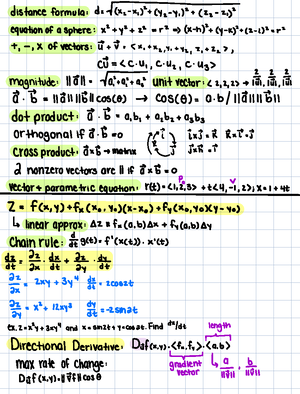 distance formula: d=√(x₂-x₁)²+(y₂-y₁)²+(z₂-z₁)²
equation of a sphere: x²+y²+z²=r² → (x-h)²+(y-k)²+(z-l)²=r²
+, -, × of vectors: u⃗ + v⃗ = <x₁+x₂, y₁+y₂, z₁+z₂>,
cu⃗ = <c·u₁, c·u₂, c·u₃>
magnitude: ||a⃗|| = √a₁²+a₂²+a₃² unit vector:
a⃗·b⃗ = ||a⃗|| ||b⃗|| cos(θ) → cos(θ) = a·b/||a⃗|| ||b⃗||
dot product: a⃗·b⃗ = a₁b₁ + a₂b₂ + a₃b₃
orthogonal if a⃗·b⃗ = 0
cross product: a⃗×b⃗ → matrix
2 nonzero vectors are || if a⃗×b⃗ = 0
vector + parametric equation: r(t) = <1,2,3> + t<4,-1,2>; x = 1+4t
z = f(x,y) + fₓ(x₀,y₀)(x-x₀) + f_y(x₀,y₀)(y-y₀)
↳ linear approx: Δz ≈ fₓ(a,b)Δx + f_y(a,b)Δy
Chain rule: d/dt g(t) = f'(x(t))·x'(t)
dz/dt = ∂z/∂x · dx/dt + ∂z/∂y · dy/dt
∂z/∂x = 2xy + 3y⁴ dx/dt = 2cos2t
∂z/∂y = x² + 12xy³ dy/dt = -2sin2t
Ex. z=x²y+3xy⁴ and x=sin2t y=cos2t. Find dz/dt
length
Directional Derivative: Dᵤf(x,y)·<fₓ,f_y>·<a,b>
gradient vector
a/||v⃗||, b/||v⃗||
max rate of change:
Dᵤf(x,y) = ||∇f|| cosθ